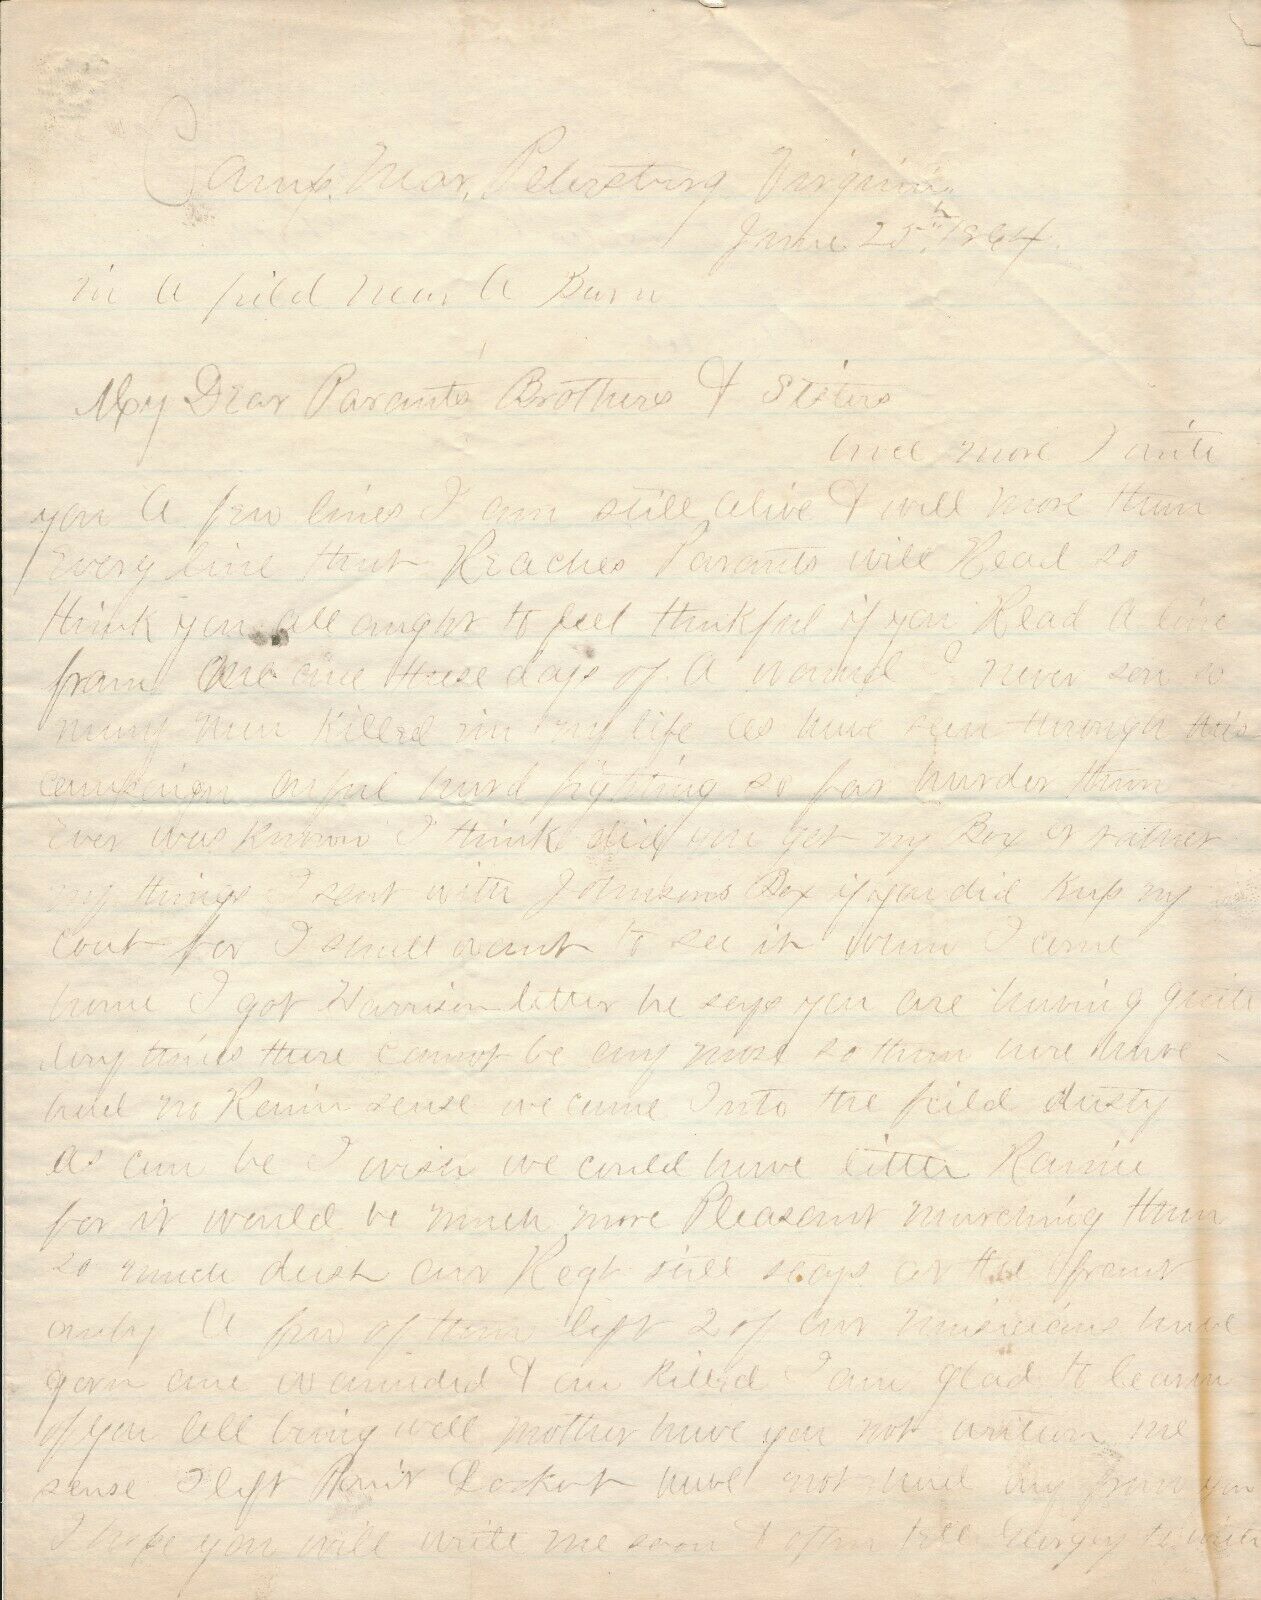 Camp Near Petersburg Virginia
June 25th 1864
in A field near A Barn
My Dear Parants Brothers & Sisters
once more I write
you A few lines I am still alive & well more than
Every line that Reaches Parants will Read so
think you all aught to feel thankful if you Read A line
from one these days of A I never seen so
many men Killed in my life as have seen through this
campaign awful hard fighting so far harder than
Ever was known I think did you get my Box or rather
my things I sent with Johnsons Box if you did Keep my
coat for I shall want to see it when I come
home I got Harrison letter he says you are having quite
dry times there cannot be any more so than here have
had no Rain sense we came Into the field dusty
As can be I wish we could have little Raine
for it would be much more Pleasant marching than
so much dust our Regt still stays at the front
only A few of them left 2 of our musicians have
gorn one wounded & one Killed I am glad to learn
of you all being well mother have you not writen me
sense I left Point Lookout have not had any from you
I hope you will write me soon & often tell to write